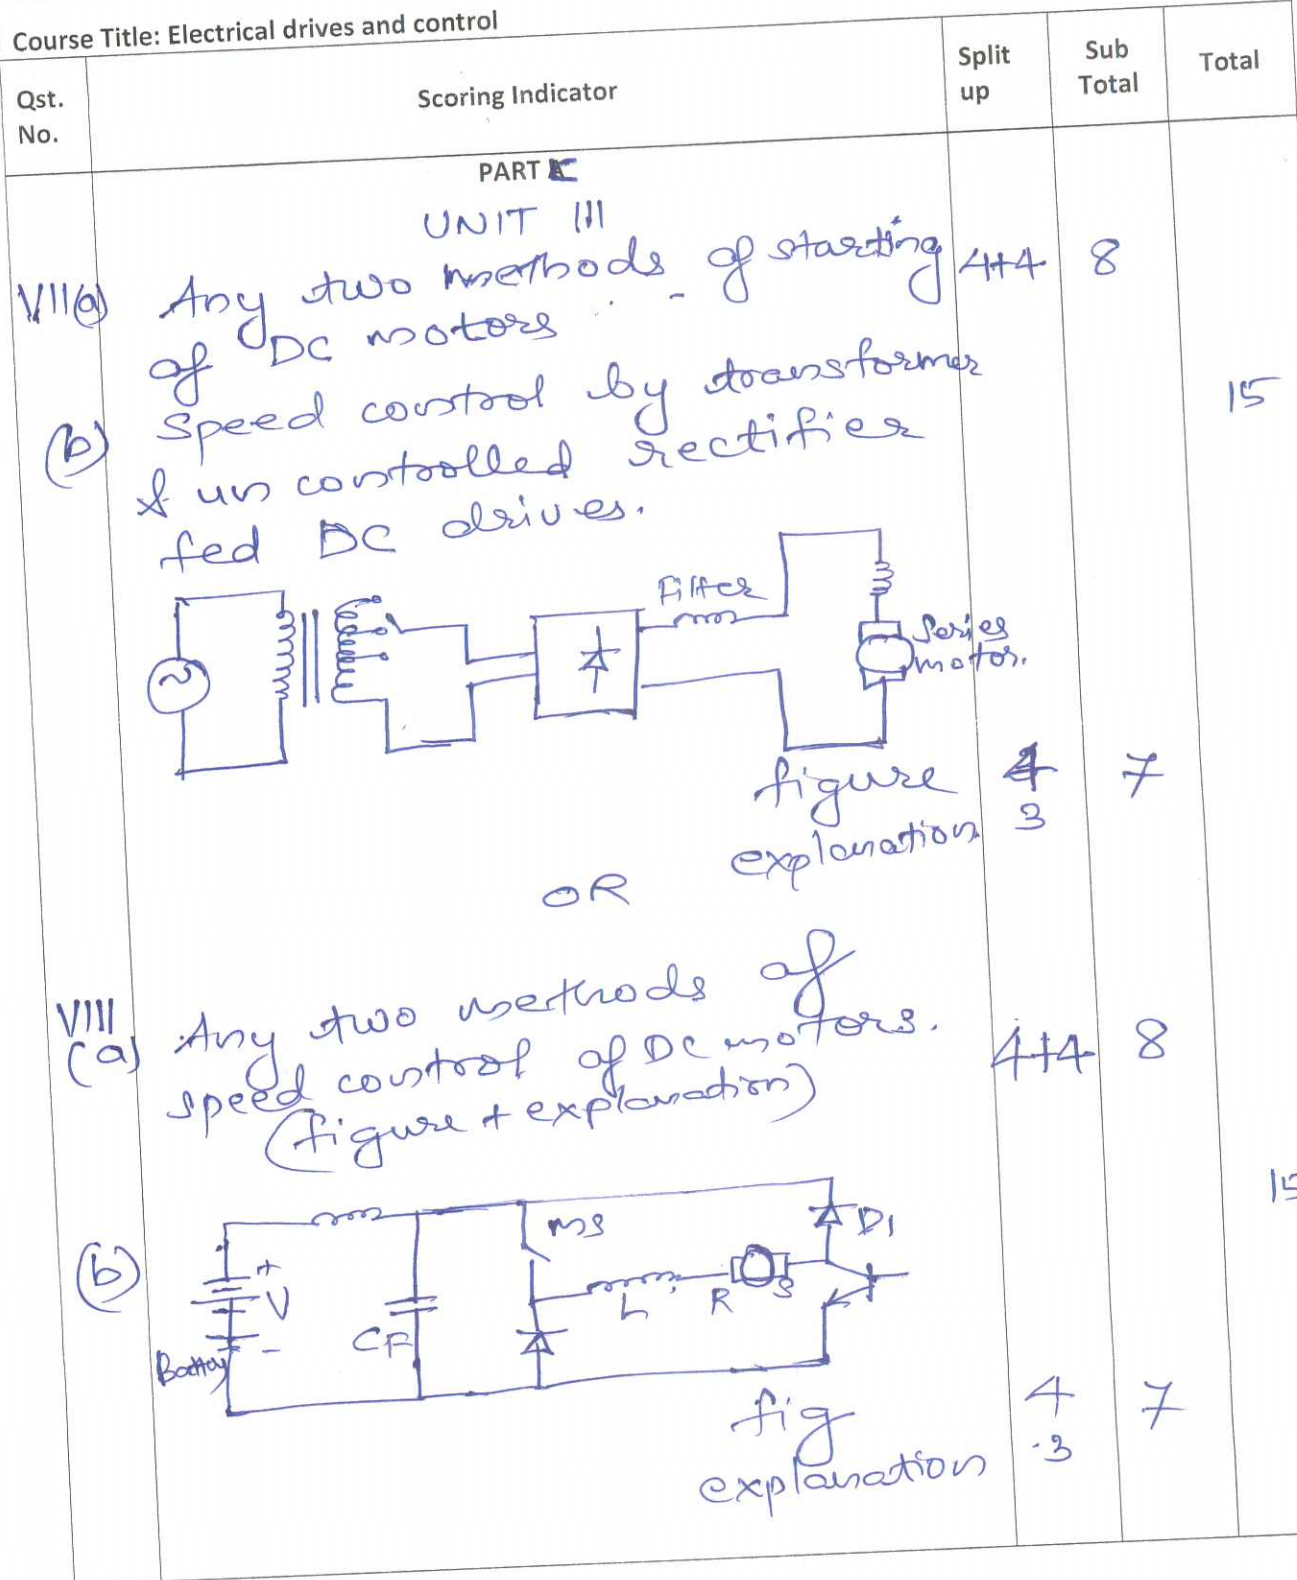 Course Title: Electrical drives and control
Qst. No.
Scoring Indicator
Split up
Sub Total
Total
PART C
UNIT III
VII(a) Any two methods of starting 4+4 8
of DC motors
(b) speed control by transformer 15
& uncontrolled rectifier
fed DC drives.
Filter
Series
motor.
figure 4 7
explanation 3
OR
VIII
(a) Any two methods of
speed control of DC motors. 4+4 8
(figure + explanation)
15
(b)
MS
D1
+
V
L
R
S
CF
-
Battery
fig 4 7
explanation 3